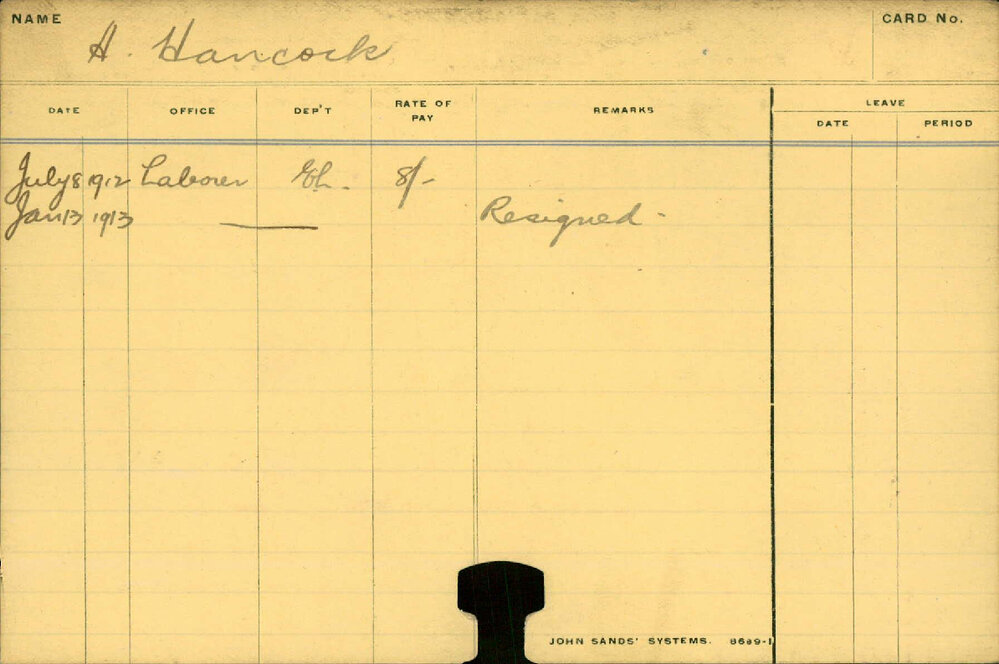 NAME
CARD No.
H. Hancock
DATE OFFICE DEP'T RATE OF PAY REMARKS LEAVE
DATE PERIOD
July 8 1912 Laborer 8/-
Jan 13 1913 —— Resigned -
JOHN SANDS' SYSTEMS.